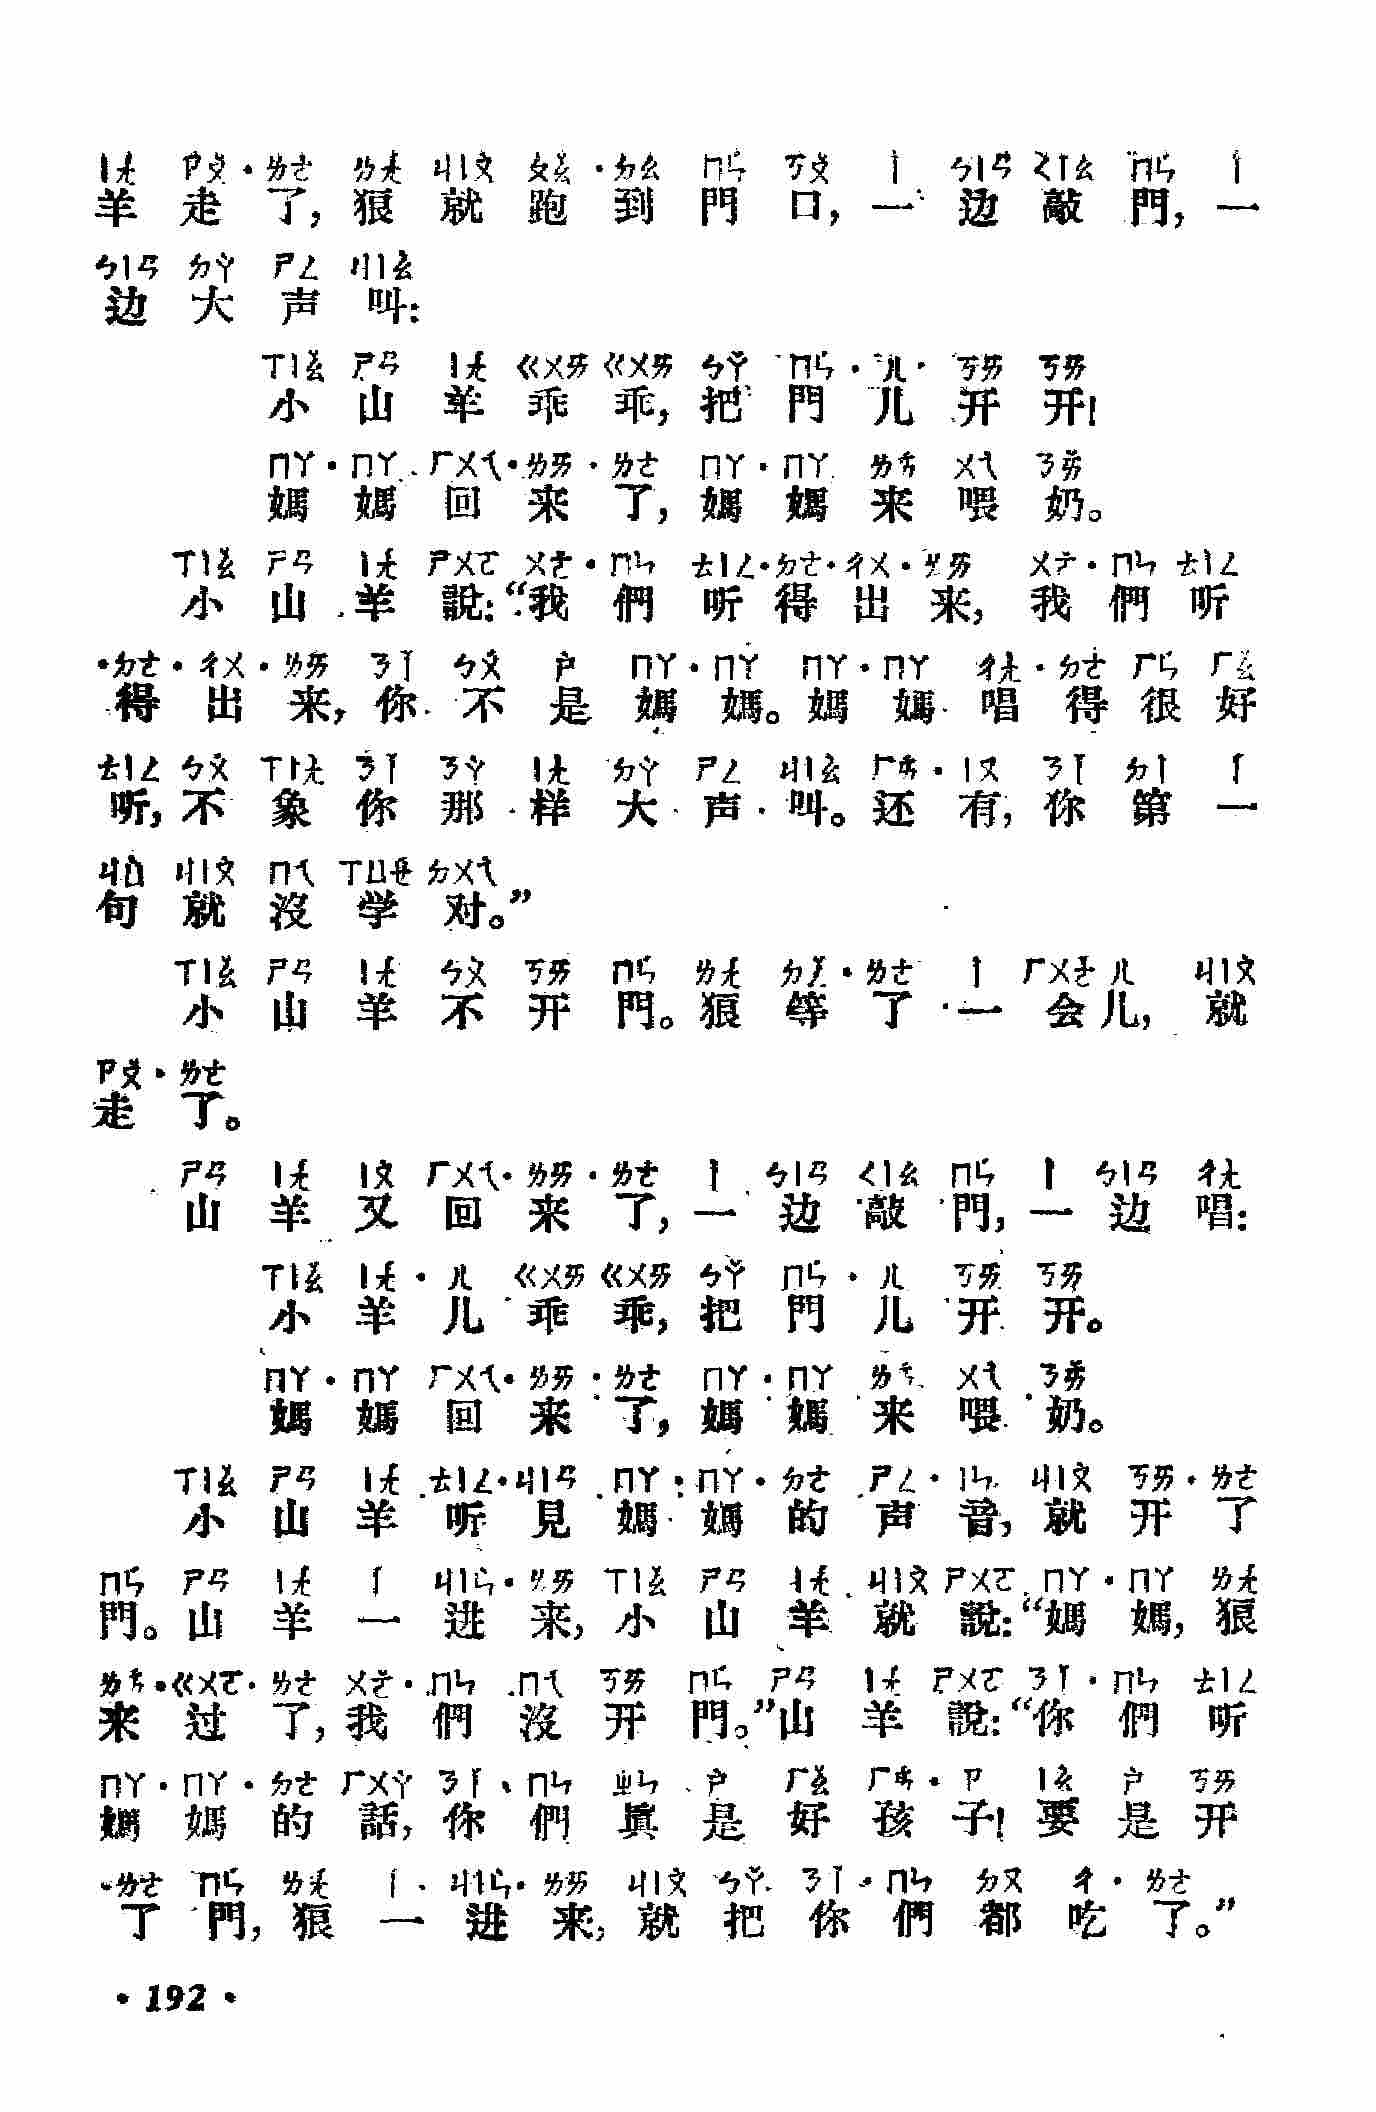 ㄧㄤˊ ㄗㄡˇ ·ㄌㄜ ㄌㄤˊ ㄐㄧㄡˋ ㄆㄠˇ ·ㄉㄠ ㄇㄣˊ ㄎㄡˇ ㄧˋ ㄅㄧㄢ ㄑㄧㄠ ㄇㄣˊ ㄧˋ
羊走了，狼就跑到門口，一边敲門，一
ㄅㄧㄢ ㄉㄚˋ ㄕㄥ ㄐㄧㄠˋ
边大声叫：
ㄒㄧㄠˇ ㄕㄢ ㄧㄤˊ ㄍㄨㄞ ㄍㄨㄞ ㄅㄚˇ ㄇㄣˊ ·ㄦ ·ㄎㄞ ㄎㄞ
小山羊乖乖，把門儿开开！
ㄇㄚ ·ㄇㄚ ㄏㄨㄟˊ ·ㄌㄞ ·ㄌㄜ ㄇㄚ ·ㄇㄚ ㄌㄞˊ ㄨㄟˋ ㄋㄞˇ
媽媽回来了，媽媽来喂奶。
ㄒㄧㄠˇ ㄕㄢ ㄧㄤˊ ㄕㄨㄛ ㄨㄛˇ ·ㄇㄣ ㄊㄧㄥ ·ㄉㄜ ·ㄔㄨ ·ㄌㄞ ㄨㄛˇ ·ㄇㄣ ㄊㄧㄥ
小山羊說：“我們听得出来，我們听
·ㄉㄜ ·ㄔㄨ ·ㄌㄞ ㄋㄧˇ ㄅㄨˊ ㄕˋ ㄇㄚ ·ㄇㄚ ㄇㄚ ·ㄇㄚ ㄔㄤˋ ·ㄉㄜ ㄏㄣˇ ㄏㄠˇ
得出来，你不是媽媽。媽媽唱得很好
ㄊㄧㄥ ㄅㄨˊ ㄒㄧㄤˋ ㄋㄧˇ ㄋㄚˋ ㄧㄤˋ ㄉㄚˋ ㄕㄥ ㄐㄧㄠˋ ㄏㄞˊ ·ㄧㄡ ㄋㄧˇ ㄉㄧˋ ㄧ
听，不象你那样大声叫。还有，你第一
ㄐㄩˋ ㄐㄧㄡˋ ㄇㄟˊ ㄒㄩㄝˊ ㄉㄨㄟˋ
句就沒学对。”
ㄒㄧㄠˇ ㄕㄢ ㄧㄤˊ ㄅㄨˋ ㄎㄞ ㄇㄣˊ ㄌㄤˊ ㄉㄥˇ ·ㄌㄜ ㄧˋ ㄏㄨㄜˇㄦ ㄐㄧㄡˋ
小山羊不开門。狼等了一会儿，就
ㄗㄡˇ ·ㄌㄜ
走了。
ㄕㄢ ㄧㄤˊ ㄧㄡˋ ㄏㄨㄟˊ ·ㄌㄞ ·ㄌㄜ ㄧˋ ㄅㄧㄢ ㄑㄧㄠ ㄇㄣˊ ㄧˋ ㄅㄧㄢ ㄔㄤˋ
山羊又回来了，一边敲門，一边唱：
ㄒㄧㄠˇ ㄧㄤˊ ·ㄦ ㄍㄨㄞ ㄍㄨㄞ ㄅㄚˇ ㄇㄣˊ ·ㄦ ㄎㄞ ㄎㄞ
小羊儿乖乖，把門儿开开。
ㄇㄚ ·ㄇㄚ ㄏㄨㄟˊ ·ㄌㄞ ·ㄌㄜ ㄇㄚ ·ㄇㄚ ㄌㄞˊ ㄨㄟˋ ㄋㄞˇ
媽媽回来了，媽媽来喂奶。
ㄒㄧㄠˇ ㄕㄢ ㄧㄤˊ ㄊㄧㄥ ·ㄐㄧㄢ ㄇㄚ ·ㄇㄚ ·ㄉㄜ ㄕㄥ ·ㄧㄣ ㄐㄧㄡˋ ㄎㄞ ·ㄌㄜ
小山羊听見媽媽的声音，就开了
ㄇㄣˊ ㄕㄢ ㄧㄤˊ ㄧˊ ㄐㄧㄣˋ ·ㄌㄞ ㄒㄧㄠˇ ㄕㄢ ㄧㄤˊ ㄐㄧㄡˋ ㄕㄨㄛ ㄇㄚ ·ㄇㄚ ㄌㄤˊ
門。山羊一进来，小山羊就說：“媽媽，狼
ㄌㄞˊ ·ㄍㄨㄛ ·ㄌㄜ ㄨㄛˇ ·ㄇㄣ ㄇㄟˊ ㄎㄞ ㄇㄣˊ ㄕㄢ ㄧㄤˊ ㄕㄨㄛ ㄋㄧˇ ·ㄇㄣ ㄊㄧㄥ
来过了，我們沒开門。”山羊說：“你們听
ㄇㄚ ·ㄇㄚ ·ㄉㄜ ㄏㄨㄚˋ ㄋㄧˇ ·ㄇㄣ ㄓㄣ ㄕˋ ㄏㄠˇ ㄏㄞˊ ·ㄗ ㄧㄠˋ ㄕˋ ㄎㄞ
媽媽的話，你們眞是好孩子！要是开
·ㄌㄜ ㄇㄣˊ ㄌㄤˊ ㄧˊ ㄐㄧㄣˋ ·ㄌㄞ ㄐㄧㄡˋ ㄅㄚˇ ㄋㄧˇ ·ㄇㄣ ㄉㄡ ㄔ ·ㄌㄜ
了門，狼一进来，就把你們都吃了。”
·192·